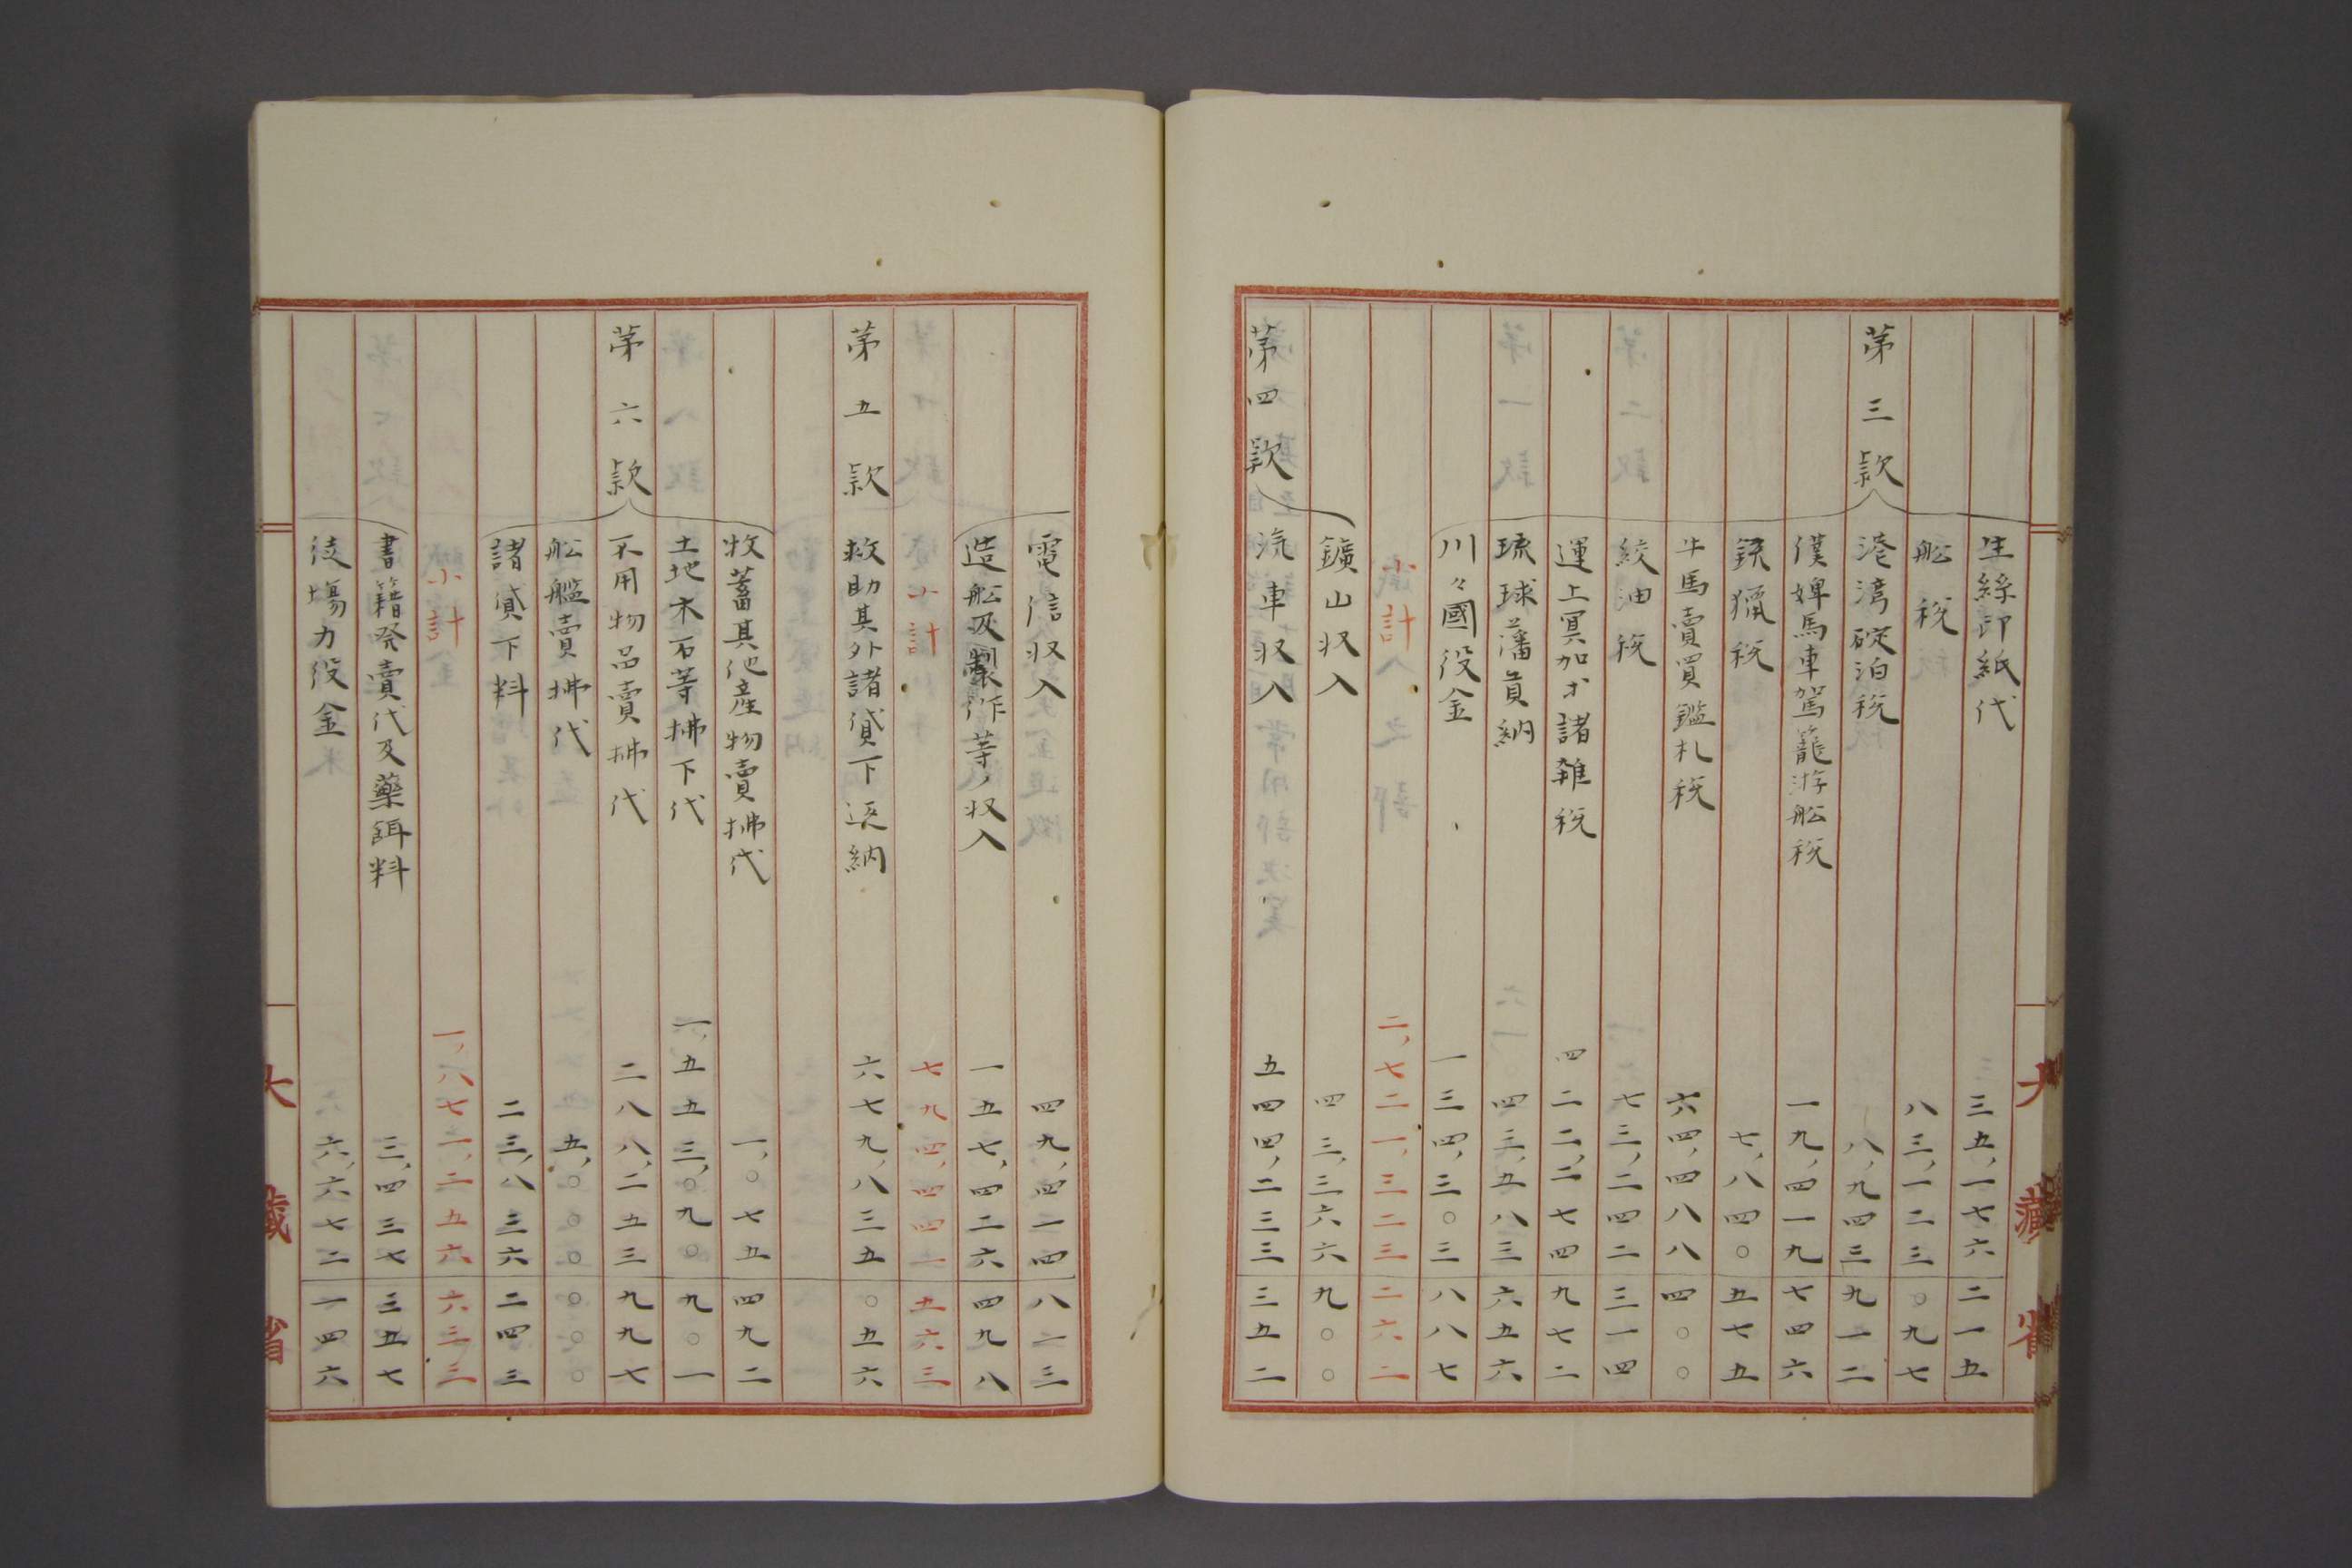 生絲印紙代 三五,一七六 二一五
舩税 八三,一二三 〇九七
第三款 港湾碇泊税 八,九四三 九一二
僕婢馬車駕籠游舩税 一九,四一九 七四六
銃猟税 七,八四〇 五七五
牛馬賣買鑑札税 六四,四八八 四〇〇
絞油税 七三,二四二 三一四
運上冥加才諸雑税 四二二,二七四 九七二
琉球藩貢納 四三,五八三 六五六
川々國役金 一三四,三〇三 八八七
小計 二,七二一,三二三 二六二
鑛山収入 四三,三六六 九〇〇
第四款 汽車収入 五四四,二三三 三五二
大藏省
電信収入 四九,四一四 八二三
造舩及製作等ノ収入 一五七,四二六 四九八
小計 七九四,四四一 五六三
第五款 救助其外諸貸下返納 六七九,八三五 〇五六
牧蓄其他産物賣拂代 一,〇七五 四九二
土地木石等拂下代 一,五五三,〇九〇 九〇一
第六款 不用物品賣拂代 二八八,二五三 九九七
舩艦賣拂代 五,〇〇〇 〇〇〇
諸貸下料 二三,八三六 二四三
小計 一,八七一,二五六 六三三
書籍発賣代及藥餌料 三,四三七 三五七
徒場力役金 六,六七二 一四六
大藏省